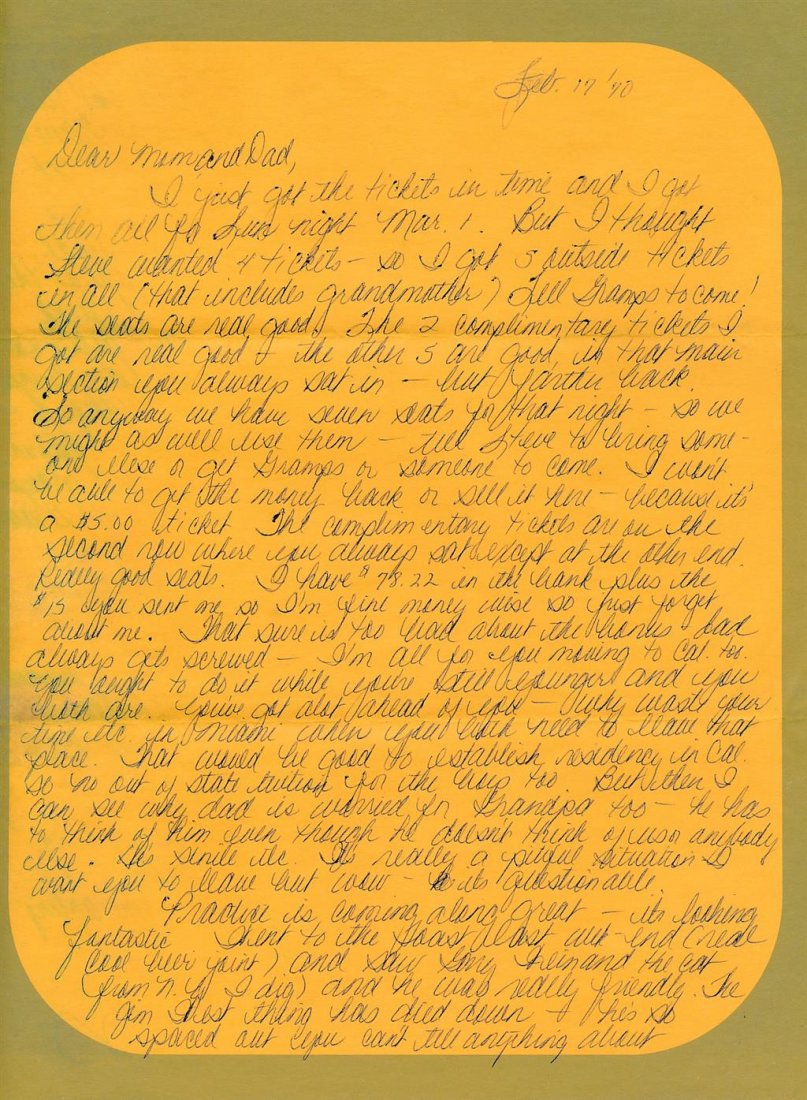 Feb. 17 '70
Dear Mom and Dad,
I just got the tickets in time and I got
them all for Sun night Mar. 1. But I thought
Steve wanted 4 tickets - so I got 5 outside tickets
in all (that includes grandmother) Tell Gramps to come!
The seats are real good. The 2 complimentary tickets I
got are real good & the other 5 are good, in that main
section you always sat in - but farther back.
So anyway we have seven seats for that night - so we
might as well use them - tell Steve to bring some-
one else or get Gramps or someone to come. I won't
be able to get the money back or sell it here - because it's
a $5.00 ticket The complimentary tickets are on the
second row where you always sat except at the other end.
Really good seats. I have $78.22 in the bank plus the
$15 you sent me, so I'm fine money wise so just forget
about me. That sure is too bad about the bonus dad
always gets screwed - I'm all for you moving to Cal. too.
You ought to do it while you're still younger and you
both are. You've got alot ahead of you - why waste your
time etc. in Miami when you both need to leave that
place. That would be good to establish residency in Cal.
so no out of state tuition for the boys too But then I
can see why dad is worried for Grandpa too - he has
to think of him even though he doesn't think of us or anybody
else. He's senile etc. It's really a pitiful situation I
want you to leave but wow - its questionable.
Practice is coming along great - its looking
fantastic Went to the last week-end (real
cool beer joint) and saw Gary and the cat
(from N.Y. I dig) and he was really friendly. The
Jim thing has died down - he's so
spaced out you can't tell anything about